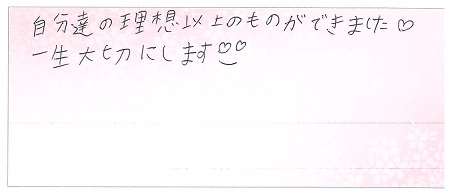 自分達の理想以上のものができました♡
一生大切にします♡♡